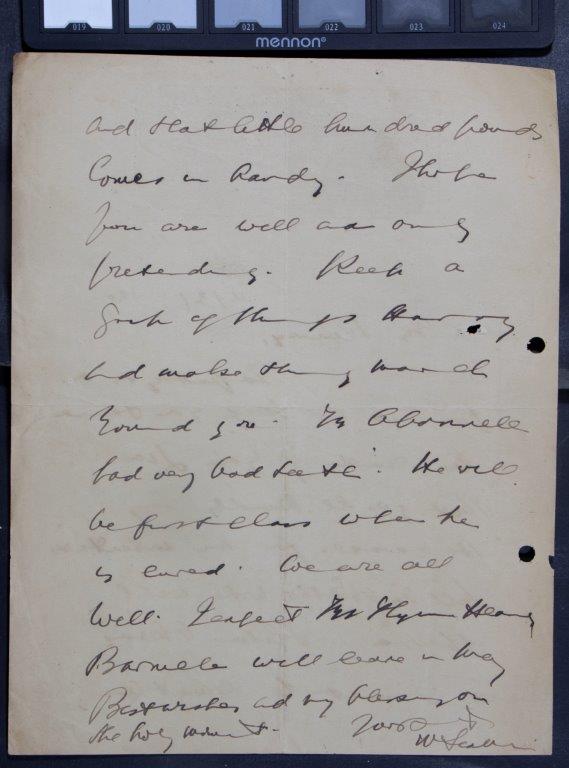 019 020 021 022 023 024
mennon®
and that little hundred pounds
comes in handy. I hope
you are well and only
pretending. Keep a
grip of things Harry
and make them march
round you. Fr O'Connell
had very bad teeth. He will
be first class when he
is cured. We are all
well. I expect Fr Flynn Henry
will leave in May
Best wishes and my blessing on
the holy mount. Yours